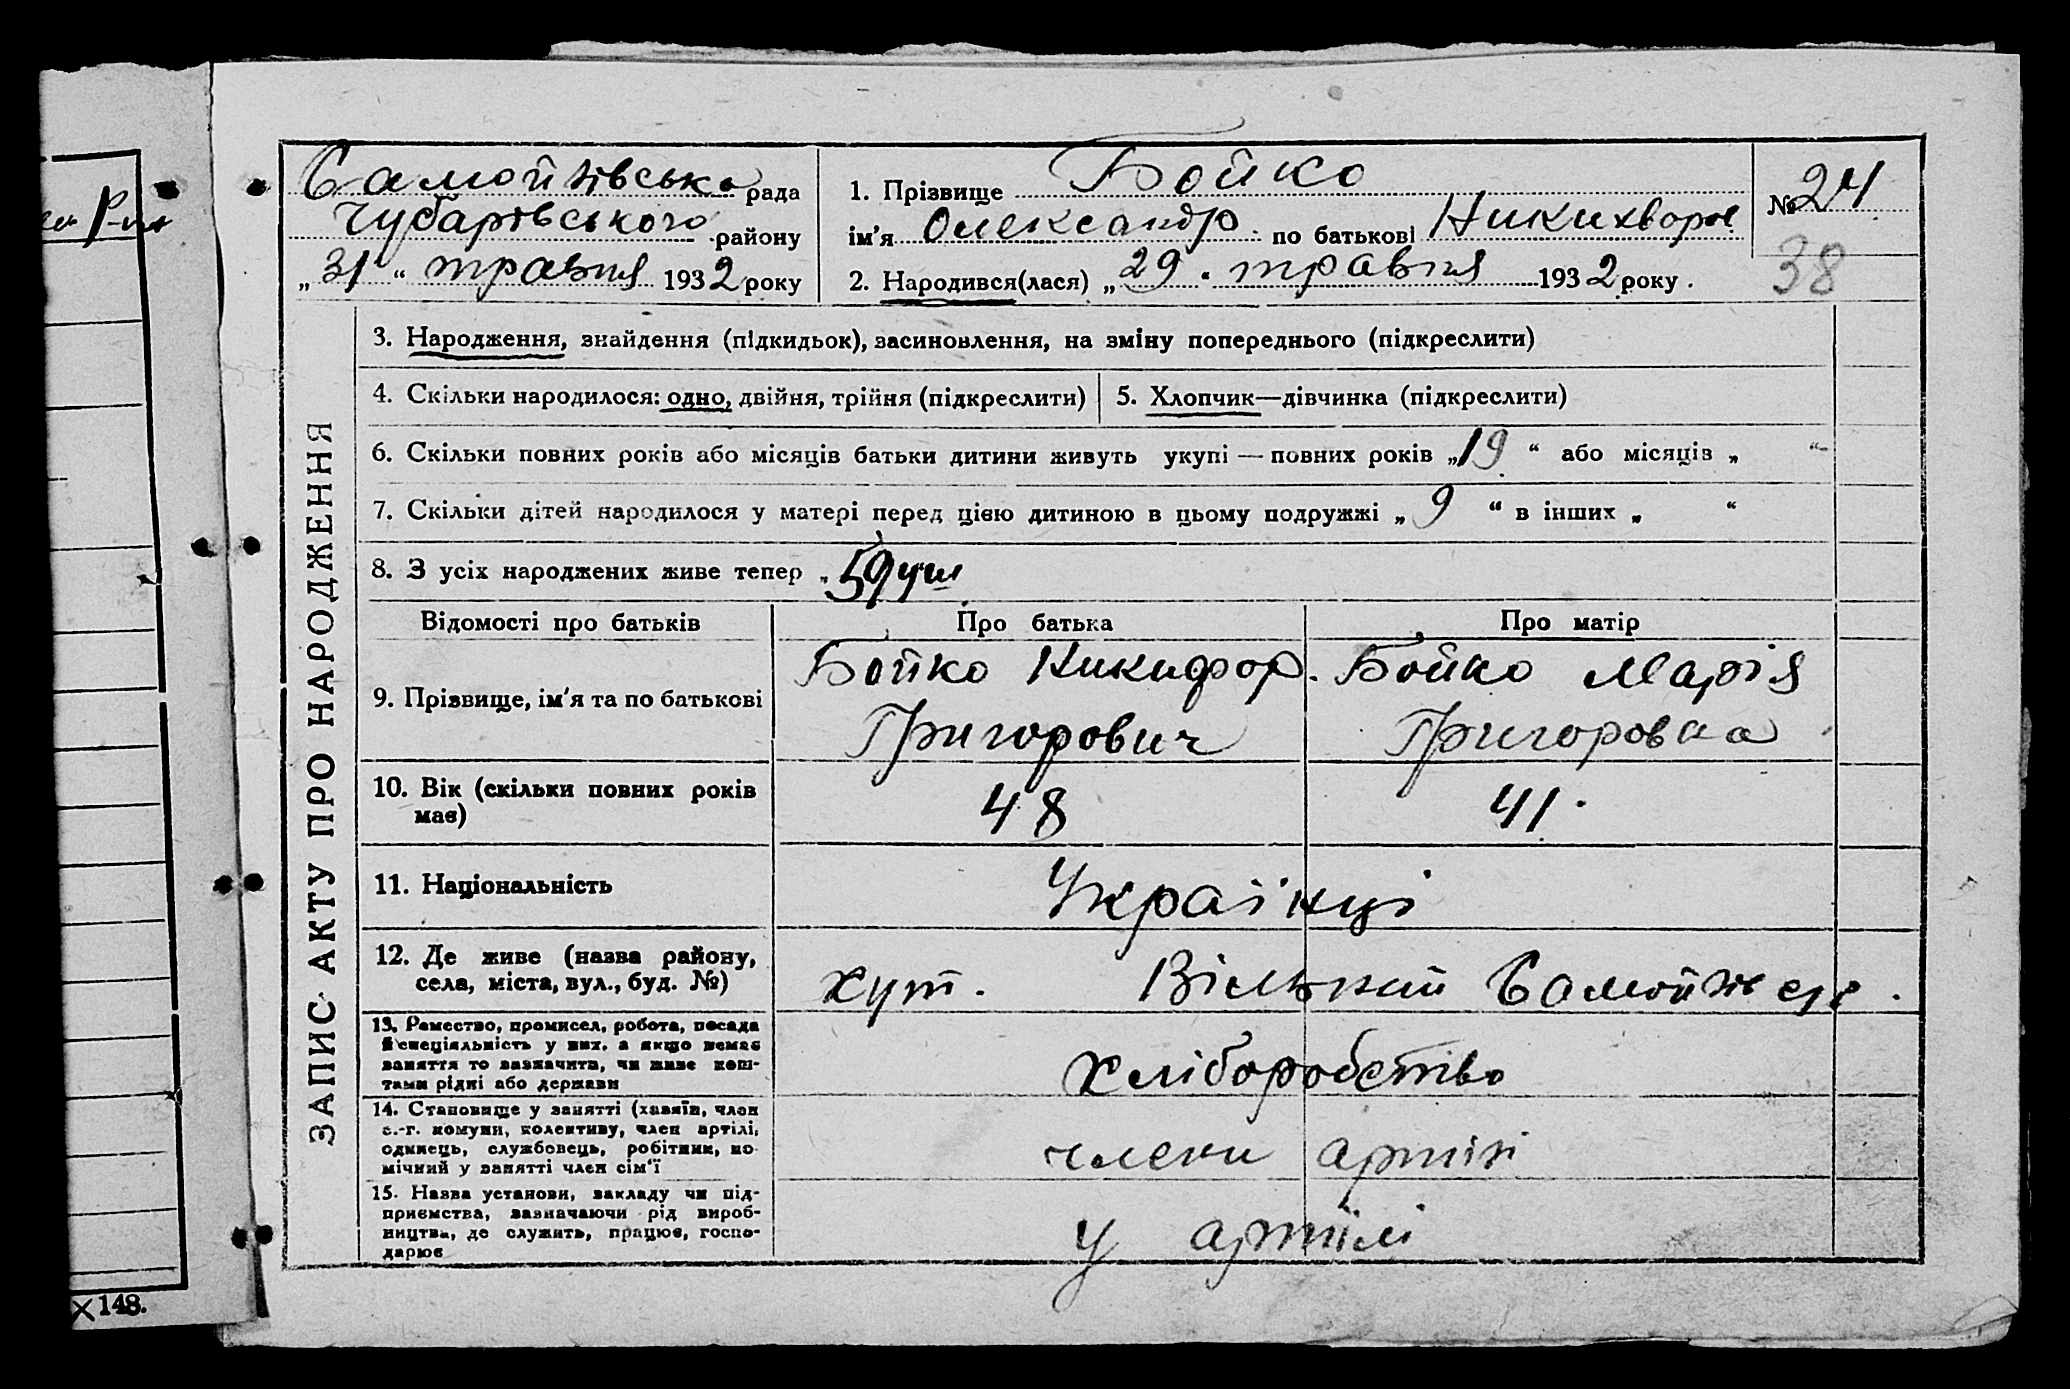 Самойлівська рада
Чубарівського району
„31“ травня 1932 року
1. Прізвище Бойко
ім'я Олександр. по батькові Никихворов
2. Народився(лася) „29. травня 1932 року.
№ 24
38
ЗАПИС АКТУ ПРО НАРОДЖЕННЯ
3. Народження, знайдення (підкидьок), засиновлення, на зміну попереднього (підкреслити)
4. Скільки народилося: одно, двійня, трійня (підкреслити)
5. Хлопчик—дівчинка (підкреслити)
6. Скільки повних років або місяців батьки дитини живуть укупі — повних років „19“ або місяців „ “
7. Скільки дітей народилося у матері перед цією дитиною в цьому подружжі „9“ в інших „ “
8. З усіх народжених живе тепер „5 душ
Відомості про батьків
Про батька
Про матір
9. Прізвище, ім'я та по батькові
Бойко Никифор.
Григорович
Бойко Марія
Григоровна
10. Вік (скільки повних років
має)
48
41.
11. Національність
Українці
12. Де живе (назва району,
села, міста, вул., буд. №)
хут. Вільний
13. Ремество, промисел, робота, посада
й спеціяльність у них, а якщо немає
заняття то зазначити, чи живе кош-
тами рідні або держави
хліборобство
14. Становище у занятті (хазяїн, член
с.-г. комуни, колективу, член артілі,
одинець, службовець, робітник, по-
мічний у занятті член сім'ї
члени артілі
15. Назва установи, закладу чи під-
приємства, зазначаючи рід вироб-
ництва, де служить, працює, госпо-
дарює
у артілі
148.